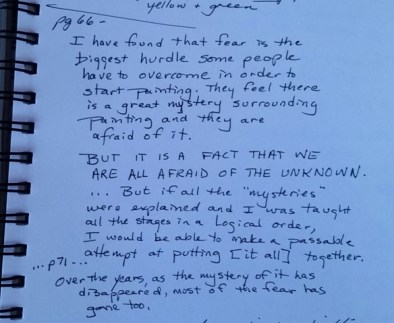 yellow + green
pg 66 -
I have found that fear is the
biggest hurdle some people
have to overcome in order to
start painting. They feel there
is a great mystery surrounding
painting and they are
afraid of it.
BUT IT IS A FACT THAT WE
ARE ALL AFRAID OF THE UNKNOWN.
... But if all the "mysteries"
were explained and I was taught
all the stages in a Logical order,
I would be able to make a passable
attempt at putting [it all] together.
...p71-...
Over the years, as the mystery of it has
disappeared, most of the fear has
gone too.